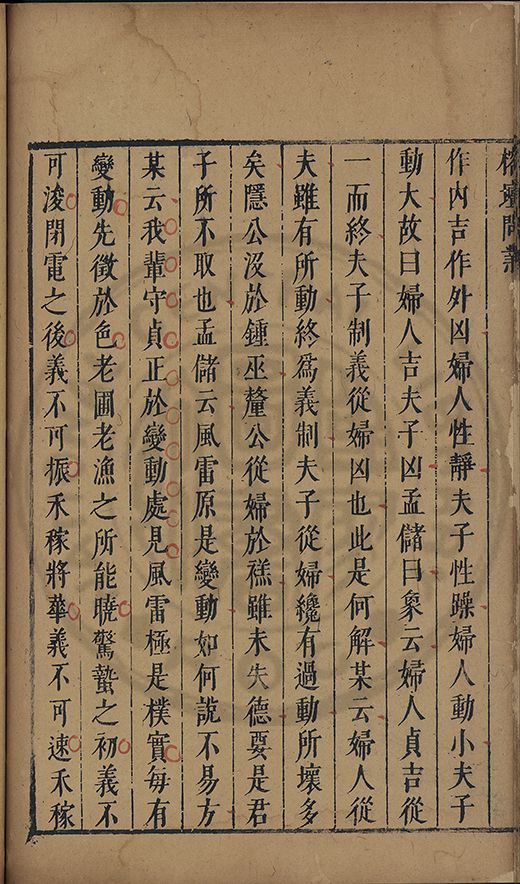 榕壇問業
作內吉作外凶婦人性靜夫子性躁婦人動小夫子
動大故曰婦人吉夫子凶孟儲曰象云婦人貞吉從
一而終夫子制義從婦凶也此是何解某云婦人從
夫雖有所動終爲義制夫子從婦纔有過動所壞多
矣隱公沒於鍾巫釐公從婦於禚雖未失德要是君
子所不取也孟儲云風雷原是變動如何說不易方
某云我輩守貞正於變動處見風雷極是樸實每有
變動先徵於色老圃老漁之所能曉驚蟄之初義不
可浚閉電之後義不可振禾稼將華義不可速禾稼